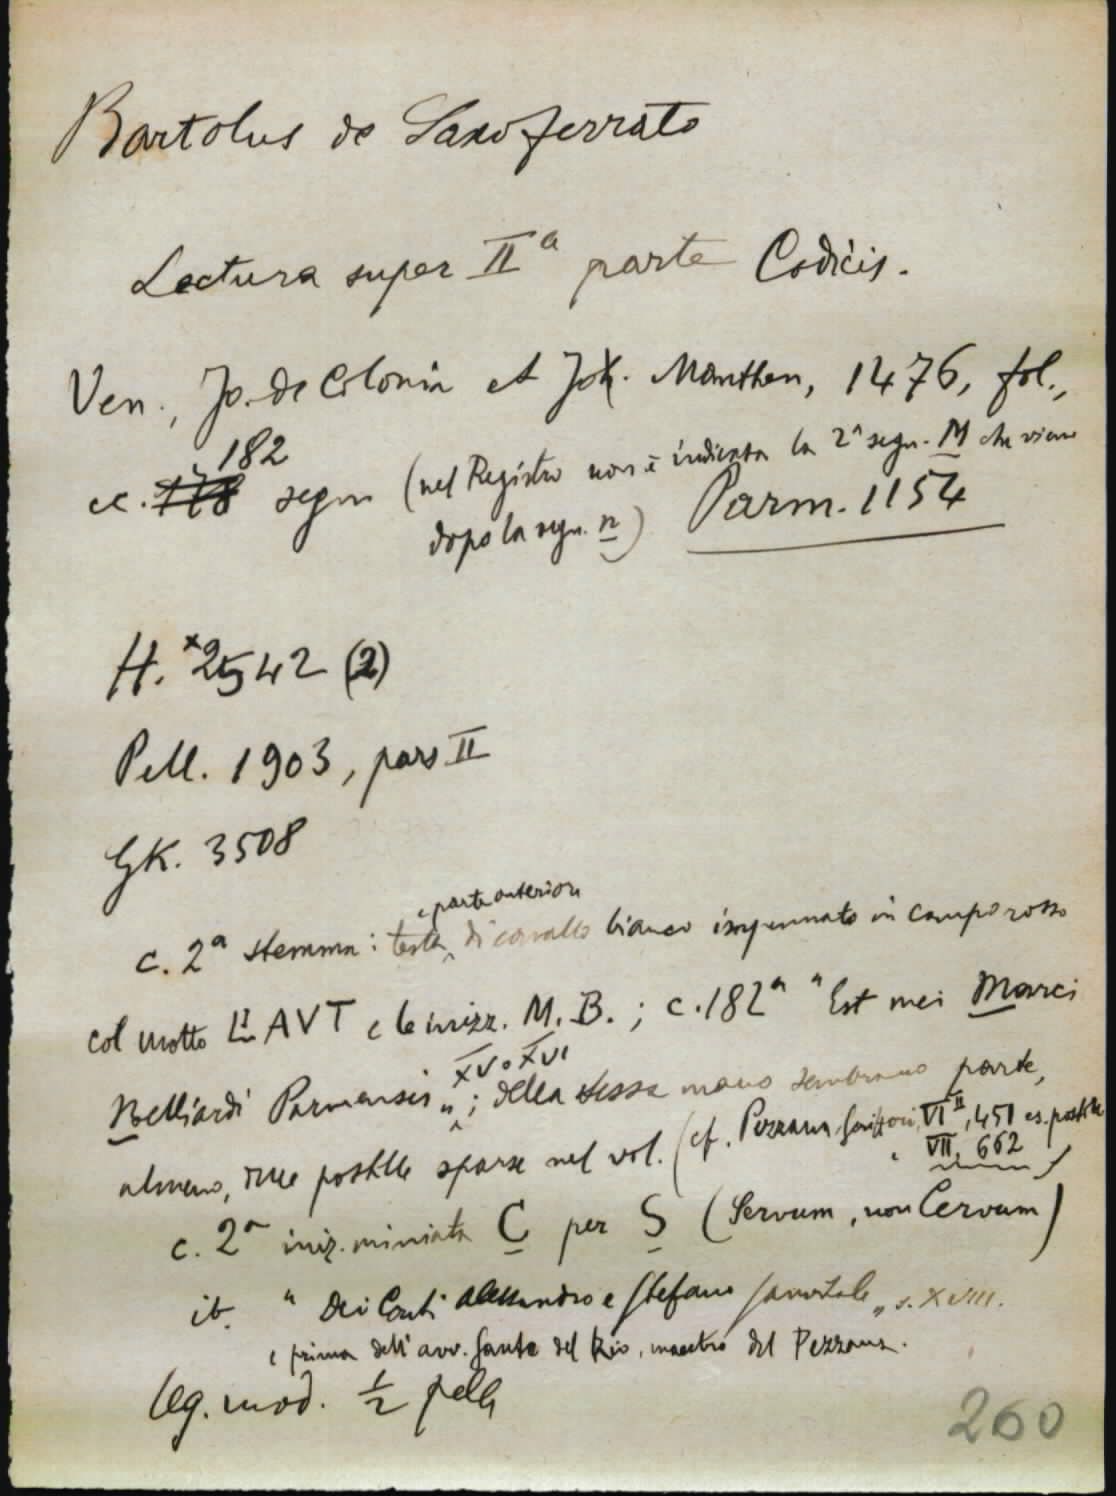 Bartolus de Saxoferrato
Lectura super IIª parte Codicis.
Ven., Jo. de Colonia et Joh. Manthen, 1476, fol.,
182
cc. 178 segn (nel Registro non è indicata la 2ª segn. M che viene
dopo la segn. n) Parm. 1154
H. *2542 (2)
Pell. 1903, pars II
GK. 3508
e parte anteriore
c. 2ª stemma: testa di cavallo bianco impennato in campo rosso
col motto AVT e le inizz. M. B.; c. 182ª "Est mei Marci
XV o XVI
Belliardi Parmensis"; della stessa mano sembrano parte,
almeno, delle postille sparse nel vol. (cf. Pezzana, Scrittori, VI II, 451 es. postille
VII, 662)
c. 2ª iniz. miniata C per S (Servum, non Cervum)
ib. "Dei Conti Alessandro e Stefano Sanvitale" s. XVIII.
e prima dell'avv. Sante del Rio, maestro del Pezzana.
leg. mod. ½ pelle
260